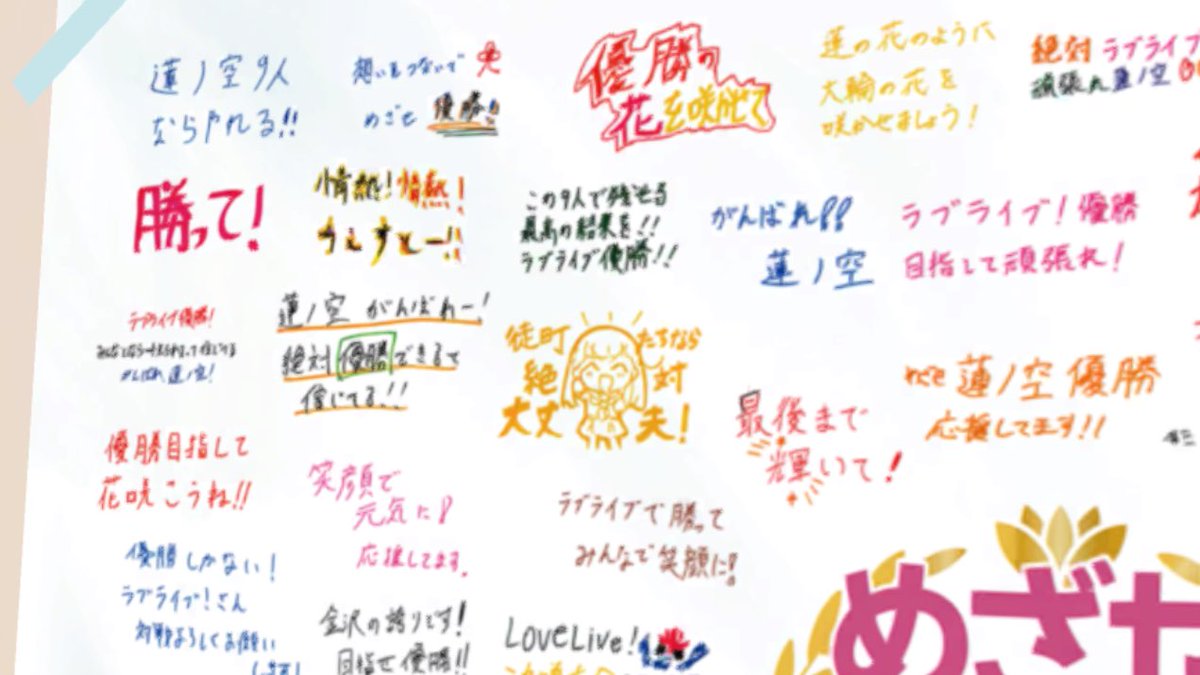 蓮ノ空9人
ならやれる!!
想いをつないで
めざせ 優勝!!
優勝の
花を咲かせて
蓮の花のように
大輪の花を
咲かせましょう!
絶対 ラブライブ
頑張れ蓮ノ空
勝って!
情熱!情熱!
ちぇすとー!!
この9人で残せる
最高の結果を!!
ラブライブ優勝!!
がんばれ!!
蓮ノ空
ラブライブ!優勝
目指して頑張れ!
ラブライブ優勝!
がんばれ蓮ノ空!
蓮ノ空 がんばれー!
絶対優勝できるって
信じてる!!
徒町 たるなら
絶対
大丈夫!
最後まで
輝いて!
めざせ 蓮ノ空優勝
応援してます!!
優勝目指して
花咲こうね!!
笑顔で
元気に!
応援してます。
ラブライブで勝って
みんなで笑顔に!!
優勝しかない!
ラブライブ!さん
対戦よろしくお願い
金沢の誇りです!
目指せ優勝!!
LoveLive!
めざせ